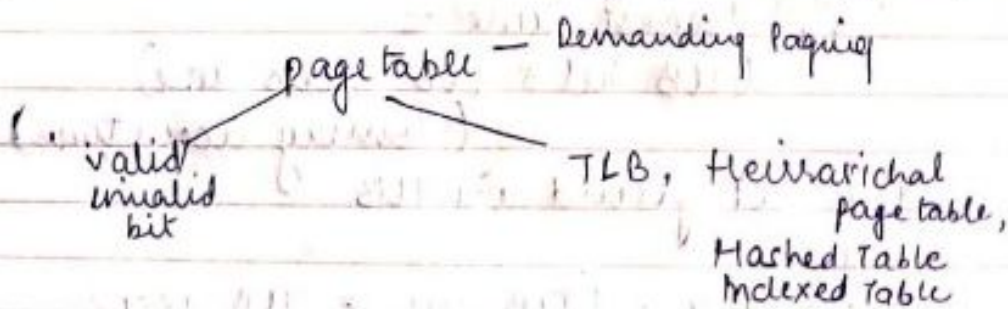 page table – Demanding Paging
valid
invalid
bit
TLB, Heirarichal
page table,
Hashed Table
Indexed Table